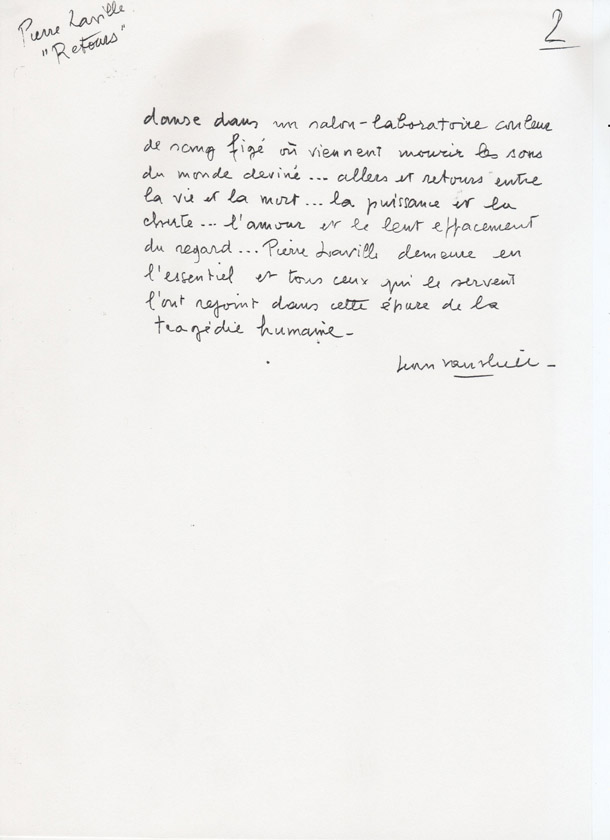 Pierre Laville
"Retours"
2
danse dans un salon-laboratoire couleur
de sang figé où viennent mourir les sons
du monde deviné... allers et retours entre
la vie et la mort... la puissance et la
chute... l'amour et le lent effacement
du regard... Pierre Laville demeure en
l'essentiel et tous ceux qui le servent
l'ont rejoint dans cette épure de la
tragédie humaine -